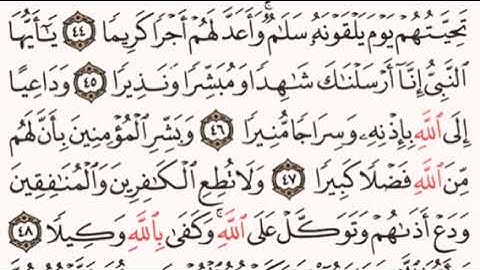 تَحِيَّتُهُمْ يَوْمَ يَلْقَوْنَهُۥ سَلَٰمٌۚ وَأَعَدَّ لَهُمْ أَجْرًا كَرِيمًا ٤٤ يَٰٓأَيُّهَا
ٱلنَّبِىُّ إِنَّآ أَرْسَلْنَٰكَ شَٰهِدًا وَمُبَشِّرًا وَنَذِيرًا ٤٥ وَدَاعِيًا
إِلَى ٱللَّهِ بِإِذْنِهِۦ وَسِرَاجًا مُّنِيرًا ٤٦ وَبَشِّرِ ٱلْمُؤْمِنِينَ بِأَنَّ لَهُم
مِّنَ ٱللَّهِ فَضْلًا كَبِيرًا ٤٧ وَلَا تُطِعِ ٱلْكَٰفِرِينَ وَٱلْمُنَٰفِقِينَ
وَدَعْ أَذَىٰهُمْ وَتَوَكَّلْ عَلَى ٱللَّهِۚ وَكَفَىٰ بِٱللَّهِ وَكِيلًا ٤٨